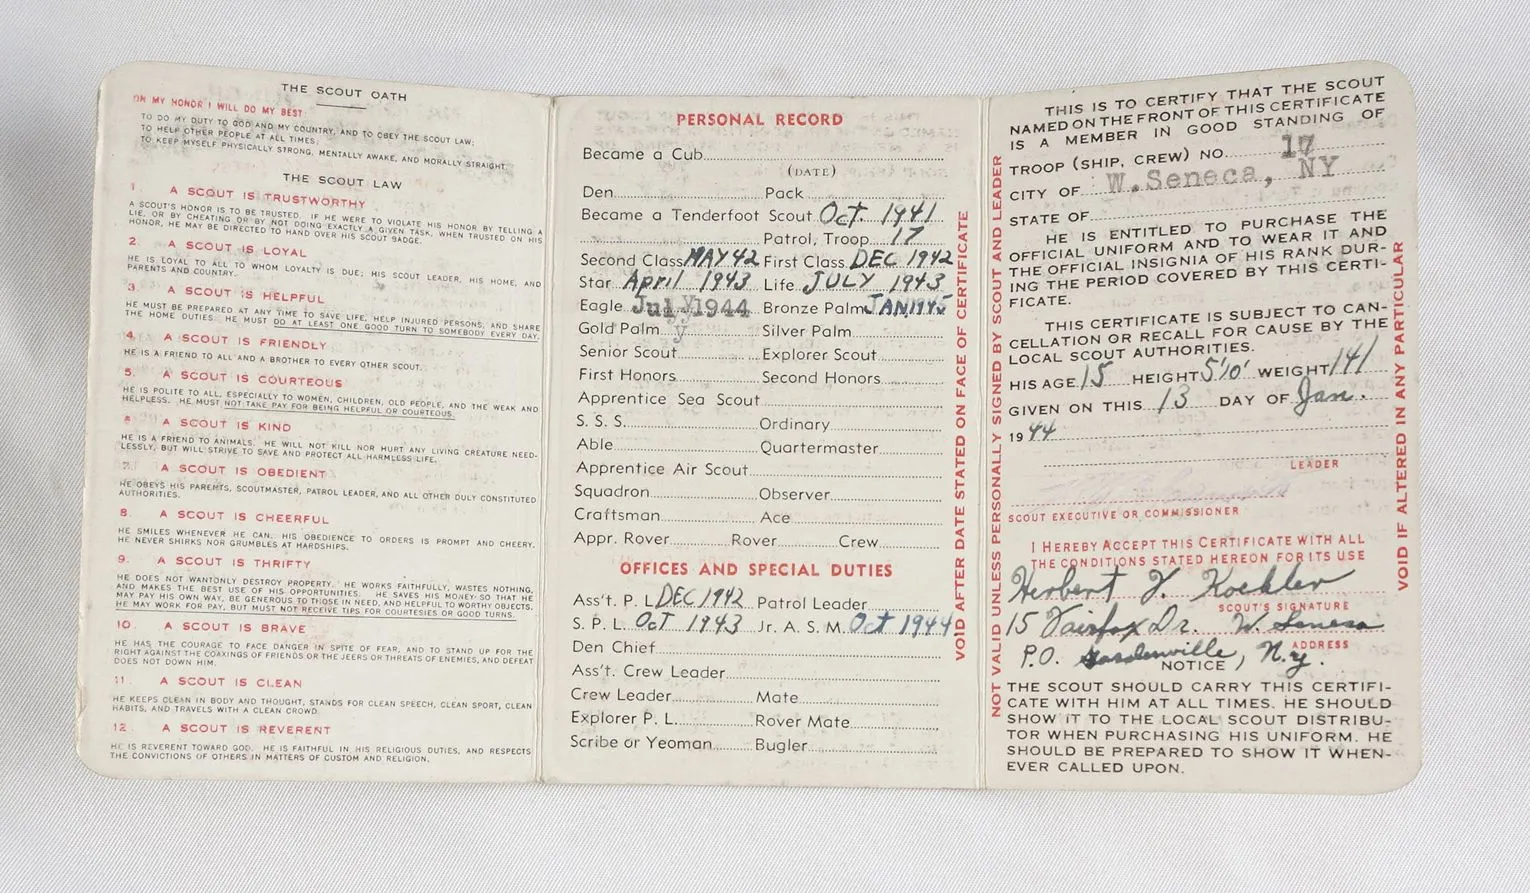 THE SCOUT OATH
ON MY HONOR I WILL DO MY BEST:
TO DO MY DUTY TO GOD AND MY COUNTRY, AND TO OBEY THE SCOUT LAW;
TO HELP OTHER PEOPLE AT ALL TIMES;
TO KEEP MYSELF PHYSICALLY STRONG, MENTALLY AWAKE, AND MORALLY STRAIGHT.
THE SCOUT LAW
1. A SCOUT IS TRUSTWORTHY
A SCOUT'S HONOR IS TO BE TRUSTED. IF HE WERE TO VIOLATE HIS HONOR BY TELLING A
LIE, OR BY CHEATING OR BY NOT DOING EXACTLY A GIVEN TASK, WHEN TRUSTED ON HIS
HONOR, HE MAY BE DIRECTED TO HAND OVER HIS SCOUT BADGE.
2. A SCOUT IS LOYAL
HE IS LOYAL TO ALL TO WHOM LOYALTY IS DUE; HIS SCOUT LEADER, HIS HOME, AND
PARENTS AND COUNTRY.
3. A SCOUT IS HELPFUL
HE MUST BE PREPARED AT ANY TIME TO SAVE LIFE, HELP INJURED PERSONS, AND SHARE
THE HOME DUTIES. HE MUST DO AT LEAST ONE GOOD TURN TO SOMEBODY EVERY DAY.
4. A SCOUT IS FRIENDLY
HE IS A FRIEND TO ALL AND A BROTHER TO EVERY OTHER SCOUT.
5. A SCOUT IS COURTEOUS
HE IS POLITE TO ALL, ESPECIALLY TO WOMEN, CHILDREN, OLD PEOPLE, AND THE WEAK AND
HELPLESS. HE MUST NOT TAKE PAY FOR BEING HELPFUL OR COURTEOUS.
A SCOUT IS KIND
HE IS A FRIEND TO ANIMALS. HE WILL NOT KILL NOR HURT ANY LIVING CREATURE NEED-
LESSLY, BUT WILL STRIVE TO SAVE AND PROTECT ALL HARMLESS LIFE.
7. A SCOUT IS OBEDIENT
HE OBEYS HIS PARENTS, SCOUTMASTER, PATROL LEADER, AND ALL OTHER DULY CONSTITUTED
AUTHORITIES.
8. A SCOUT IS CHEERFUL
HE SMILES WHENEVER HE CAN. HIS OBEDIENCE TO ORDERS IS PROMPT AND CHEERY.
HE NEVER SHIRKS NOR GRUMBLES AT HARDSHIPS.
9. A SCOUT IS THRIFTY
HE DOES NOT WANTONLY DESTROY PROPERTY. HE WORKS FAITHFULLY, WASTES NOTHING,
AND MAKES THE BEST USE OF HIS OPPORTUNITIES. HE SAVES HIS MONEY SO THAT HE
MAY PAY HIS OWN WAY, BE GENEROUS TO THOSE IN NEED, AND HELPFUL TO WORTHY OBJECTS.
HE MAY WORK FOR PAY, BUT MUST NOT RECEIVE TIPS FOR COURTESIES OR GOOD TURNS.
10. A SCOUT IS BRAVE
HE HAS THE COURAGE TO FACE DANGER IN SPITE OF FEAR, AND TO STAND UP FOR THE
RIGHT AGAINST THE COAXINGS OF FRIENDS OR THE JEERS OR THREATS OF ENEMIES, AND DEFEAT
DOES NOT DOWN HIM.
11. A SCOUT IS CLEAN
HE KEEPS CLEAN IN BODY AND THOUGHT, STANDS FOR CLEAN SPEECH, CLEAN SPORT, CLEAN
HABITS, AND TRAVELS WITH A CLEAN CROWD.
12. A SCOUT IS REVERENT
HE IS REVERENT TOWARD GOD. HE IS FAITHFUL IN HIS RELIGIOUS DUTIES, AND RESPECTS
THE CONVICTIONS OF OTHERS IN MATTERS OF CUSTOM AND RELIGION.
PERSONAL RECORD
Became a Cub
(DATE)
Den Pack
Became a Tenderfoot Scout Oct. 1941
Patrol, Troop 17
Second Class MAY 42 First Class DEC 1942
Star April 1943 Life JULY 1943
Eagle July 1944 Bronze Palm JAN. 1945
Gold Palm y Silver Palm
Senior Scout Explorer Scout
First Honors Second Honors
Apprentice Sea Scout
S. S. S. Ordinary
Able Quartermaster
Apprentice Air Scout
Squadron Observer
Craftsman Ace
Appr. Rover Rover Crew
OFFICES AND SPECIAL DUTIES
Ass't. P. L. DEC 1942 Patrol Leader
S. P. L. Oct 1943 Jr. A. S. M. Oct 1944
Den Chief
Ass't. Crew Leader
Crew Leader Mate
Explorer P. L. Rover Mate
Scribe or Yeoman Bugler
VOID AFTER DATE STATED ON FACE OF CERTIFICATE
NOT VALID UNLESS PERSONALLY SIGNED BY SCOUT AND LEADER
THIS IS TO CERTIFY THAT THE SCOUT
NAMED ON THE FRONT OF THIS CERTIFICATE
IS A MEMBER IN GOOD STANDING OF
TROOP (SHIP, CREW) NO. 17
CITY OF W. Seneca, NY
STATE OF
HE IS ENTITLED TO PURCHASE THE
OFFICIAL UNIFORM AND TO WEAR IT AND
THE OFFICIAL INSIGNIA OF HIS RANK DUR-
ING THE PERIOD COVERED BY THIS CERTI-
FICATE.
THIS CERTIFICATE IS SUBJECT TO CAN-
CELLATION OR RECALL FOR CAUSE BY THE
LOCAL SCOUT AUTHORITIES.
HIS AGE 15 HEIGHT 5'10' WEIGHT 141
GIVEN ON THIS 13 DAY OF Jan.
1944
LEADER
SCOUT EXECUTIVE OR COMMISSIONER
I HEREBY ACCEPT THIS CERTIFICATE WITH ALL
THE CONDITIONS STATED HEREON FOR ITS USE
Herbert J. Koehler
SCOUT'S SIGNATURE
15 Fairfax Dr. W. Seneca
ADDRESS
P.O. Gardenville, N.Y.
NOTICE
THE SCOUT SHOULD CARRY THIS CERTIFI-
CATE WITH HIM AT ALL TIMES. HE SHOULD
SHOW IT TO THE LOCAL SCOUT DISTRIBU-
TOR WHEN PURCHASING HIS UNIFORM. HE
SHOULD BE PREPARED TO SHOW IT WHEN-
EVER CALLED UPON.
VOID IF ALTERED IN ANY PARTICULAR